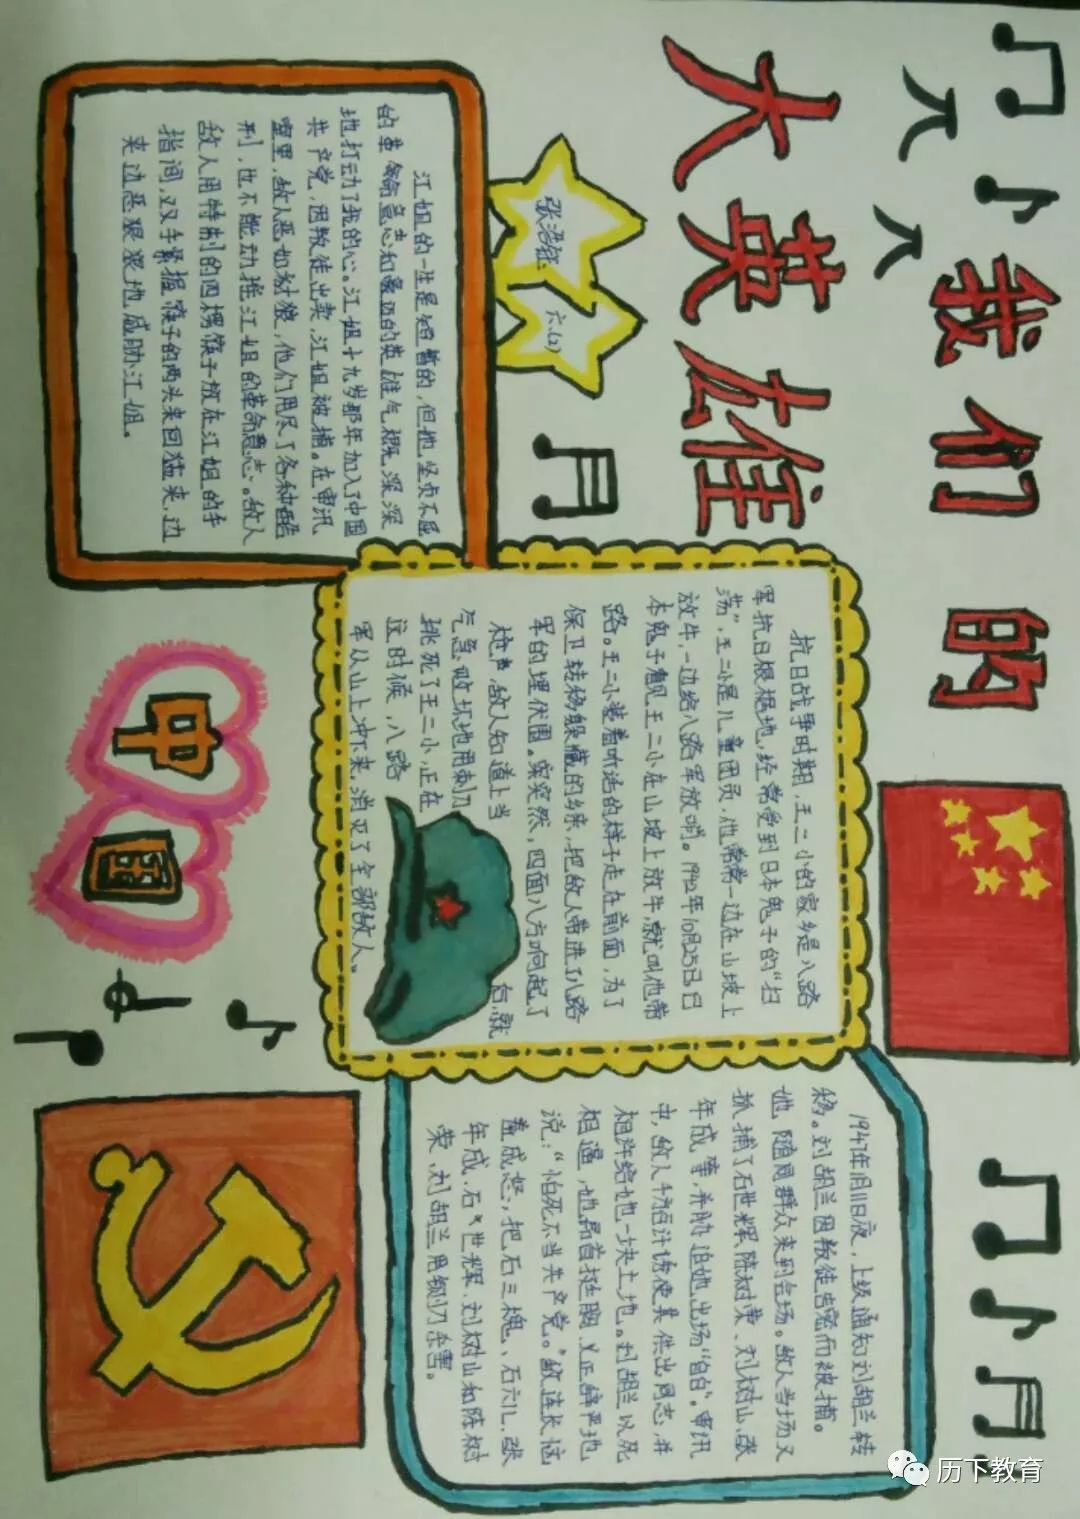 我们的
大英雄
六.(2)
江姐的一生是短暂的,但她坚贞不屈
的革命意志和豪迈的英雄气概,深深
地打动了我的心。江姐十九岁那年加入了中国
共产党,因叛徒出卖,江姐被捕。在审讯
室里,敌人恶如豺狼,他们用尽了各种酷
刑,也不能动摇江姐的革命意志。敌人
敌人用特制的四楞筷子放在江姐的手
指间,双手紧握筷子的两头来回猛夹,边
夹边恶狠狠地威胁江姐。
抗日战争时期,王二小的家乡是八路
军抗日根据地,经常受到日本鬼子的“扫
荡”,王二小是儿童团员,他常常一边在山坡上
放牛,一边给八路军放哨。1942年10月25日,日
本鬼子看见王二小在山坡上放牛,就叫他带
路。王二小装着听话的样子走在前面,为了
保卫转移躲藏的乡亲,把敌人带进了八路
军的埋伏圈。突突然,四面八方响起了
枪声,敌人知道上当 后,就
气急败坏地用刺刀
挑死了王二小,正在
这时候,八路
军从山上冲下来,消灭了全部敌人。
1947年1月11日夜,上级通知刘胡兰转
移。刘胡兰因叛徒告密而被捕。
她,随同群众来到会场。敌人当场又
抓捕了石世辉、陈树荣、刘树山、张
年成等,并胁迫她出场“自白”。审讯
中,敌人千方百计诱使其供出同志,并
相许给她一块土地。刘胡兰以死
相逼,她昂首挺胸,义正辞严地
说:“怕死不当共产党。”敌连长恼
羞成怒,把石三槐、石六儿、张
年成、石世辉、刘树山和陈树
荣、刘胡兰用铡刀杀害。
中
国
历下教育